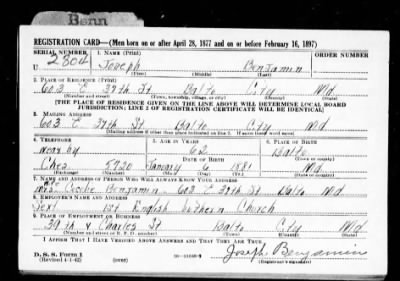 Benn
REGISTRATION CARD—(Men born on or after April 28, 1877 and on or before February 16, 1897)
SERIAL NUMBER 1. NAME (Print) ORDER NUMBER
U 2804 Joseph Benjamin
(First) (Middle) (Last)
2. PLACE OF RESIDENCE (Print)
603 E 37th St Balto City Md
(Number and street) (Town, township, village, or city) (County) (State)
[THE PLACE OF RESIDENCE GIVEN ON THE LINE ABOVE WILL DETERMINE LOCAL BOARD
JURISDICTION; LINE 2 OF REGISTRATION CERTIFICATE WILL BE IDENTICAL]
3. MAILING ADDRESS
603 E 37th St Balto City Md
(Mailing address if other than place indicated on line 2. If same insert word same)
4. TELEPHONE 5. AGE IN YEARS 6. PLACE OF BIRTH
near by 62 Balto
DATE OF BIRTH (Town or county)
Ches 5920 January 6 1881 Md
(Exchange) (Number) (Mo.) (Day) (Yr.) (State or country)
7. NAME AND ADDRESS OF PERSON WHO WILL ALWAYS KNOW YOUR ADDRESS
Mrs. Benjamin 603 E 37th St Balto Md
8. EMPLOYER'S NAME AND ADDRESS
Sext 1st English Lutheran Church
9. PLACE OF EMPLOYMENT OR BUSINESS
39th & Charles St Balto City Md
(Number and street or R. F. D. number) (Town) (County) (State)
I AFFIRM THAT I HAVE VERIFIED ABOVE ANSWERS AND THAT THEY ARE TRUE.
D. S. S. Form 1
(Revised 4-1-42) Joseph Benjamin
(Registrant's signature)